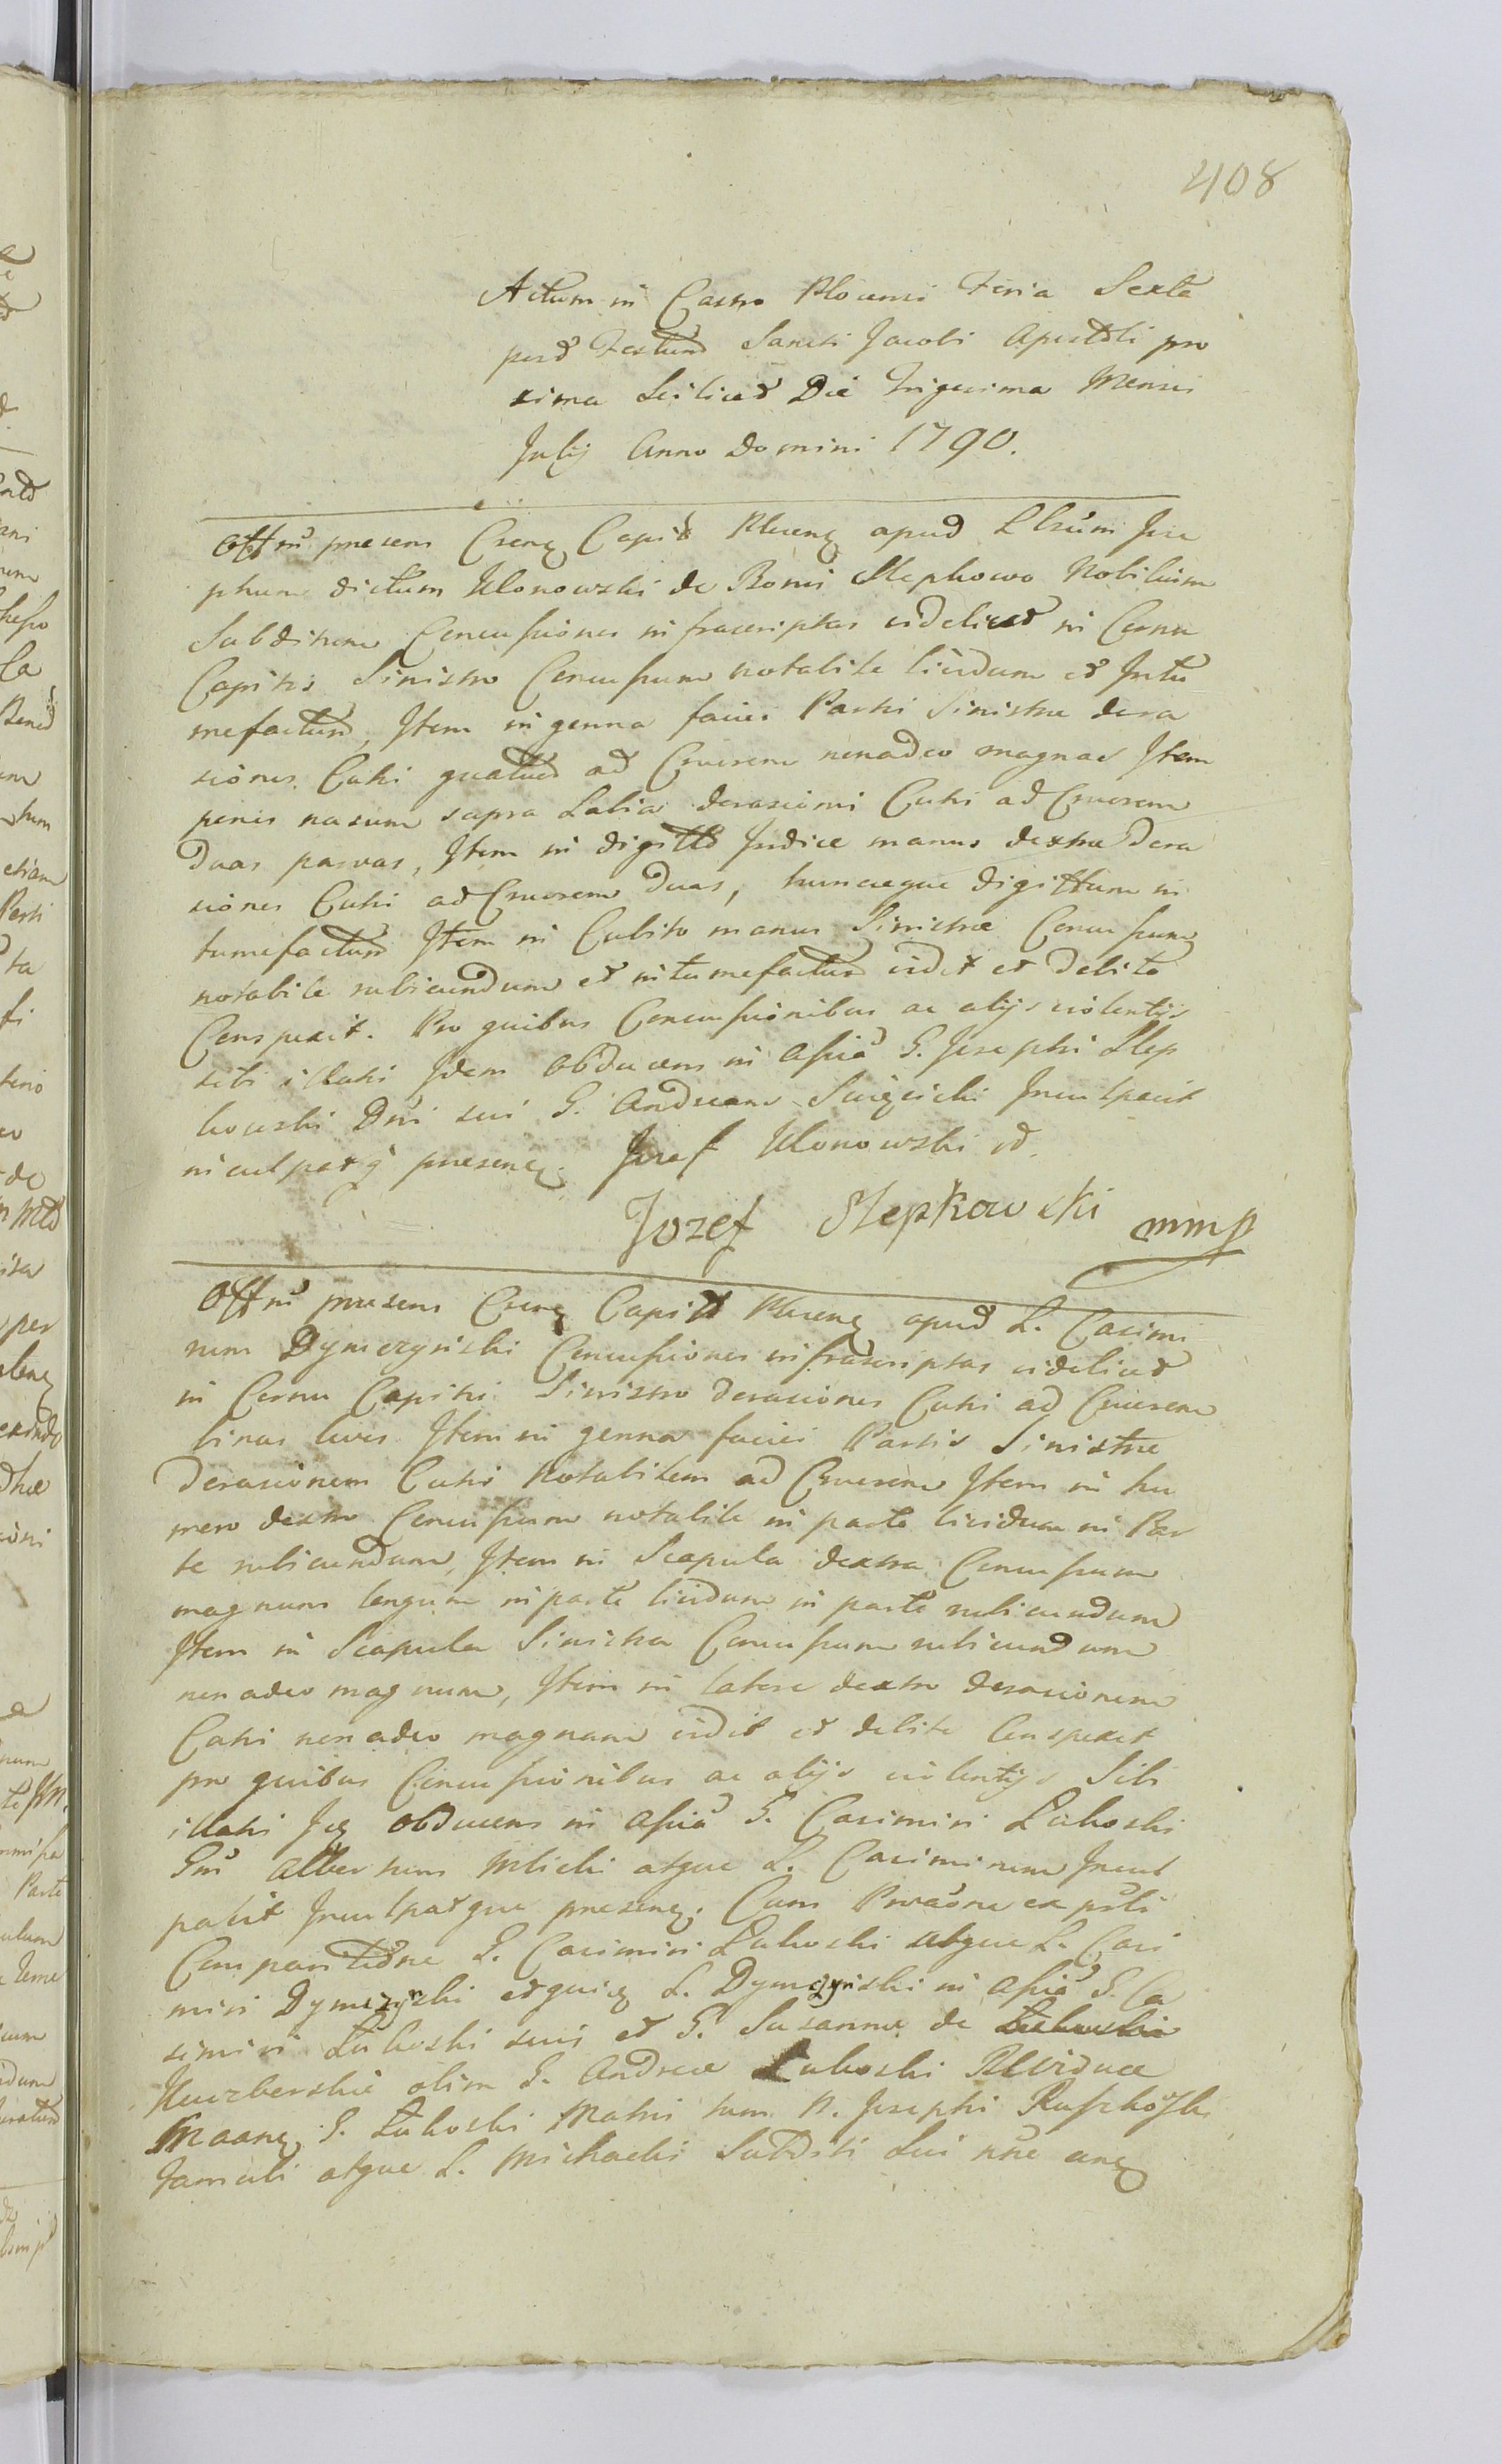 408
Actum in Castro Plocensi Feria Sexta
post Festum Sancti Jacobi Apostoli pro
xima Scilicet Die Trigesima Mensis
Julij Anno Domini 1790.
Offm praesens Csene Capit Plocene apud Lbrum Jose
phum dictum Klonowski de Bonis Slepkowo Nobilium
Subditum Concussiones infrascriptas videlicet in Cornu
Capitis Sinistro Concussum notabile lividum et Intu
mefactum, Item in genna faciei Partis Sinistrae dera
siones Cutis quatuor ad Cruorem nonadeo magnas Item
penes nasum supra Labia derasiones Cutis ad Cruorem
Duas parvas, Item in digitto Indice manus dextrae Dera
siones Cutis ad Cruorem Duas, huncceque digittum in
tumefactum Item in Cubito manus Sinistrae Concussum
notabile rubicundum et intumefactum vidit et debite
Conspexit. Pro quibus Concussionibus ac alijs violentijs
sibi illatis Idem Obducens in assia G. Josephi Slep
kowski Dni sui G. Andream Swięcicki Inculpavit
inculpatq praesene. Josef Klonowski
Jozef Slepkowski mmp
Offm praesens Csene Capit Plocene apud L. Casimi
rum Dymczynski Concussiones infrascriptas videlicet
in Cornu Capitis Sinistro derasiones Cutis ad Cruorem
binas leves Item in genna faciei Partis Sinistrae
Derasionem Cutis Notabilem ad Cruorem Item in hu
mero dextro Concussum notabile in parte lividum in Par
te rubicundum, Item in Scapula dextra Concussum
magnum longum in parte lividum in parte rubicundum
Item in Scapula Sinistra Concussum rubicundum
non adeo magnum, Item in latere dextro derasionem
Cutis non adeo magnam vidit et debite Conspexit
pro quibus Concussionibus ac alijs violentijs Sibi
illatis Obducens in assia G. Casimiri Lukoski
Gm Albertum Milicki atque L. Casimirum Incul
pavit Inculpatque praesene. Cum
Comparitione G. Casimiri Lukoski atque L. Casi
miri Dymczynski L. Dymczynski in assia G. Ca
simiri Lukoski sui et G. Susannae de
olim G. Andreae Lukoski Viduae
G. Lukoski Matris tum N. Josephi
famuli atque L. Michaelis Subditi Sui